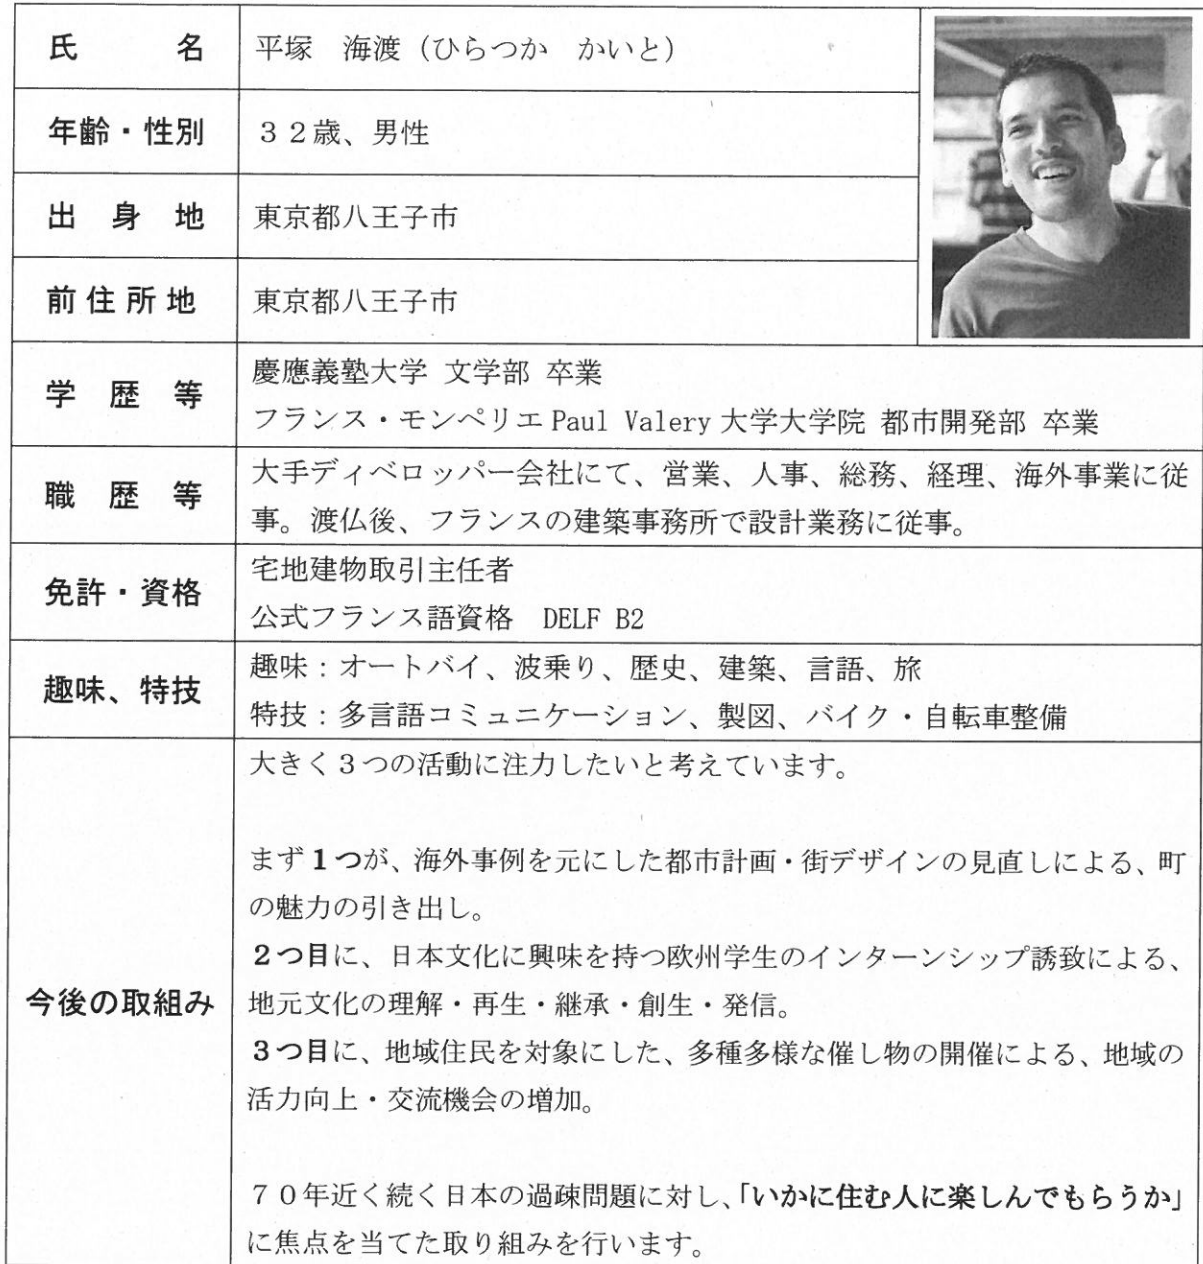 氏 名 平塚 海渡（ひらつか かいと）
年齢・性別 ３２歳、男性
出 身 地 東京都八王子市
前住所地 東京都八王子市
学 歴 等
慶應義塾大学 文学部 卒業
フランス・モンペリエ Paul Valery 大学大学院 都市開発部 卒業
職 歴 等
大手ディベロッパー会社にて、営業、人事、総務、経理、海外事業に従
事。渡仏後、フランスの建築事務所で設計業務に従事。
免許・資格
宅地建物取引主任者
公式フランス語資格 DELF B2
趣味、特技
趣味：オートバイ、波乗り、歴史、建築、言語、旅
特技：多言語コミュニケーション、製図、バイク・自転車整備
今後の取組み
大きく３つの活動に注力したいと考えています。
まず１つが、海外事例を元にした都市計画・街デザインの見直しによる、町
の魅力の引き出し。
２つ目に、日本文化に興味を持つ欧州学生のインターンシップ誘致による、
地元文化の理解・再生・継承・創生・発信。
３つ目に、地域住民を対象にした、多種多様な催し物の開催による、地域の
活力向上・交流機会の増加。
７０年近く続く日本の過疎問題に対し、「いかに住む人に楽しんでもらうか」
に焦点を当てた取り組みを行います。